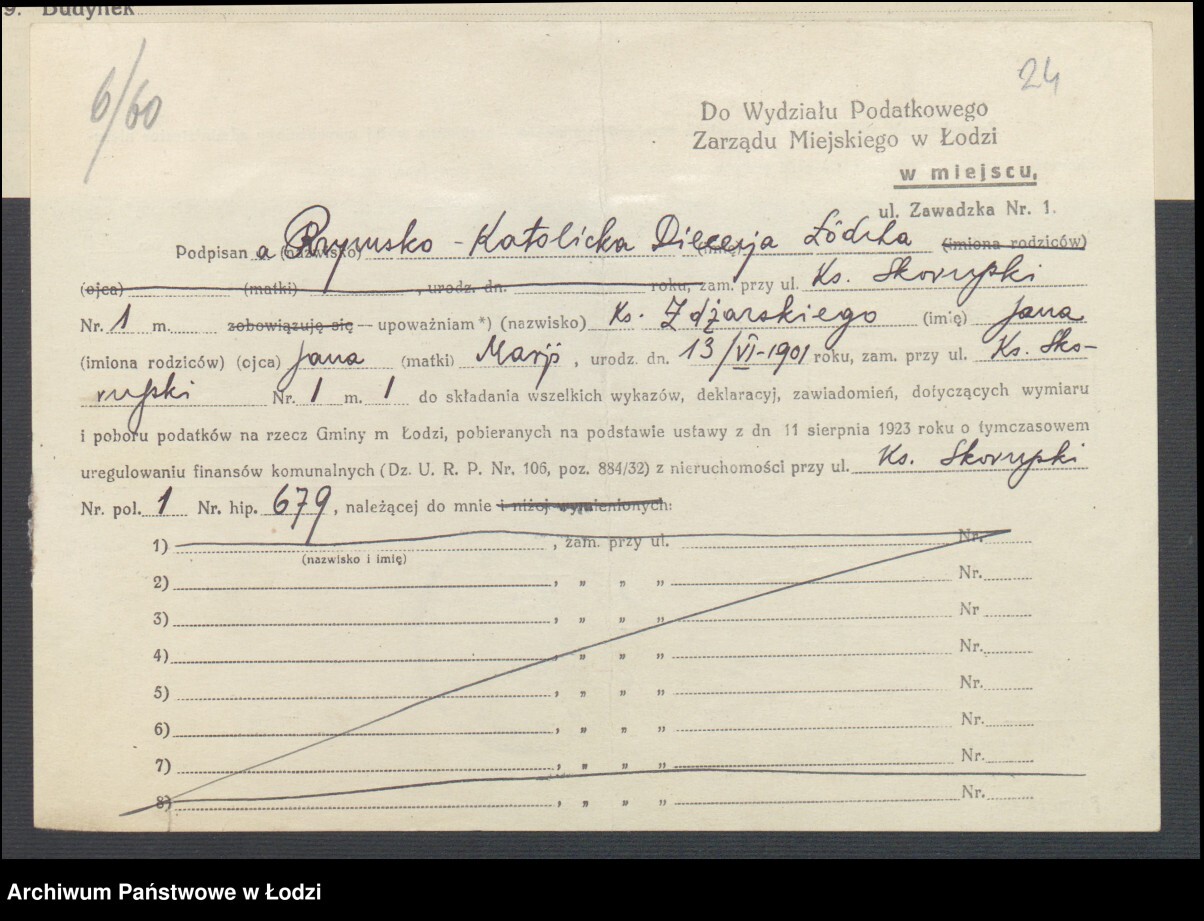 9. Budynek
6/60
24
Do Wydziału Podatkowego
Zarządu Miejskiego w Łodzi
w miejscu,
ul. Zawadzka Nr. 1.
Podpisan a (nazwisko) Rzymsko - Katolicka Diecezja (imię) Łódzka (imiona rodziców)
(ojca) (matki) , urodz. dn. roku, zam. przy ul. Ks. Skorupki
Nr. 1 m. zobowiązuję się — upoważniam *) (nazwisko) Ks. Zdżarskiego (imię) Jana
(imiona rodziców) (ojca) Jana (matki) Marji , urodz. dn. 13/VI-1901 roku, zam. przy ul. Ks. Sko-
rupki Nr. 1 m. 1 do składania wszelkich wykazów, deklaracyj, zawiadomień, dotyczących wymiaru
i poboru podatków na rzecz Gminy m Łodzi, pobieranych na podstawie ustawy z dn 11 sierpnia 1923 roku o tymczasowem
uregulowaniu finansów komunalnych (Dz. U. R. P. Nr. 106, poz. 884/32) z nieruchomości przy ul. Ks. Skorupki
Nr. pol. 1 Nr. hip. 679, należącej do mnie i niżej wymienionych:
1) , zam. przy ul. Nr.
(nazwisko i imię)
2) , „ „ „ Nr.
3) , „ „ „ Nr
4) , „ „ „ Nr.
5) , „ „ „ Nr.
6) , „ „ „ Nr.
7) , „ „ „ Nr.
8) , „ „ „ Nr.
Archiwum Państwowe w Łodzi